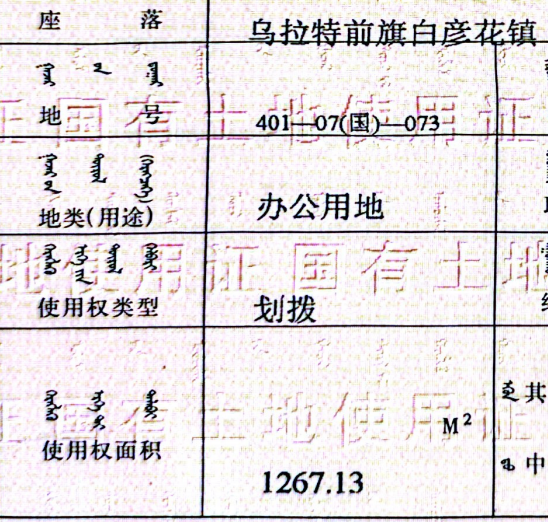 座 落 乌拉特前旗白彦花镇
地 号 401—07(国)—073
地类(用途) 办公用地
使用权类型 划拨
使用权面积 M²
1267.13
其
中
证国有土地使用证
地使用证国有土地
证国有土地使用证